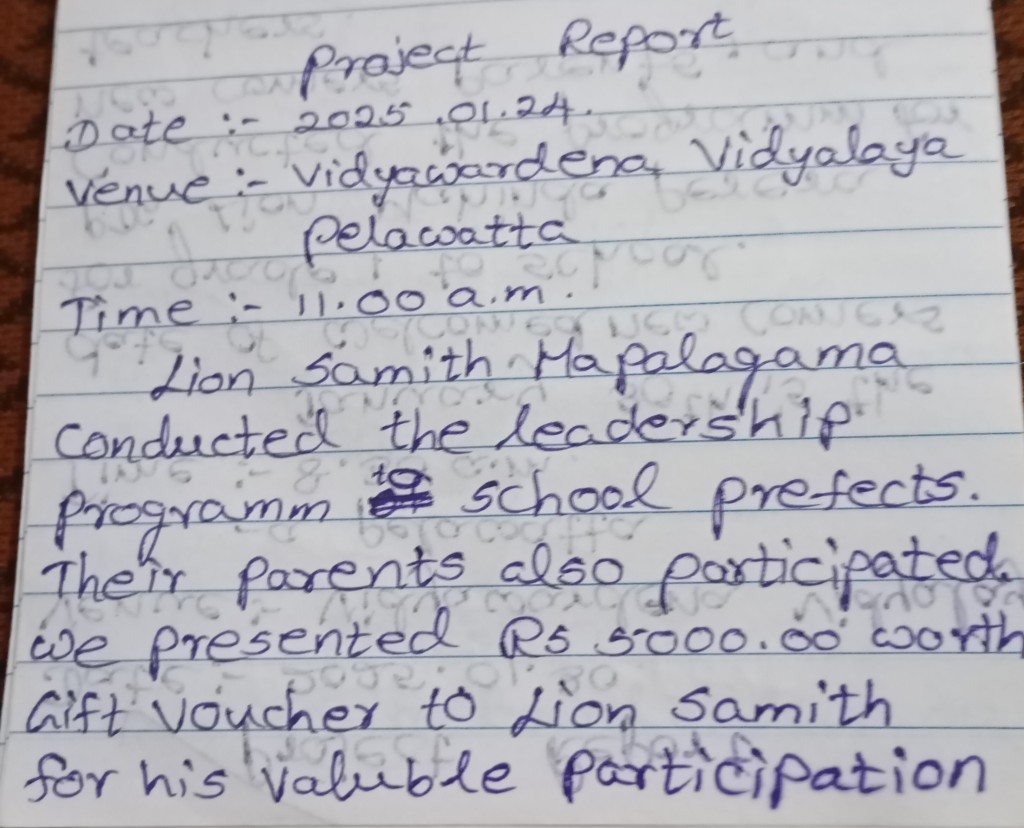 Project Report
Date :- 2025.01.24.
Venue :- Vidyawardena Vidyalaya
Pelawatta
Time :- 11.00 a.m.
Lion Samith Hapalagama
conducted the leadership
programm to school prefects.
Their parents also participated.
we presented Rs 5000.00 worth
Gift Voucher to Lion Samith
for his Valuble Participation